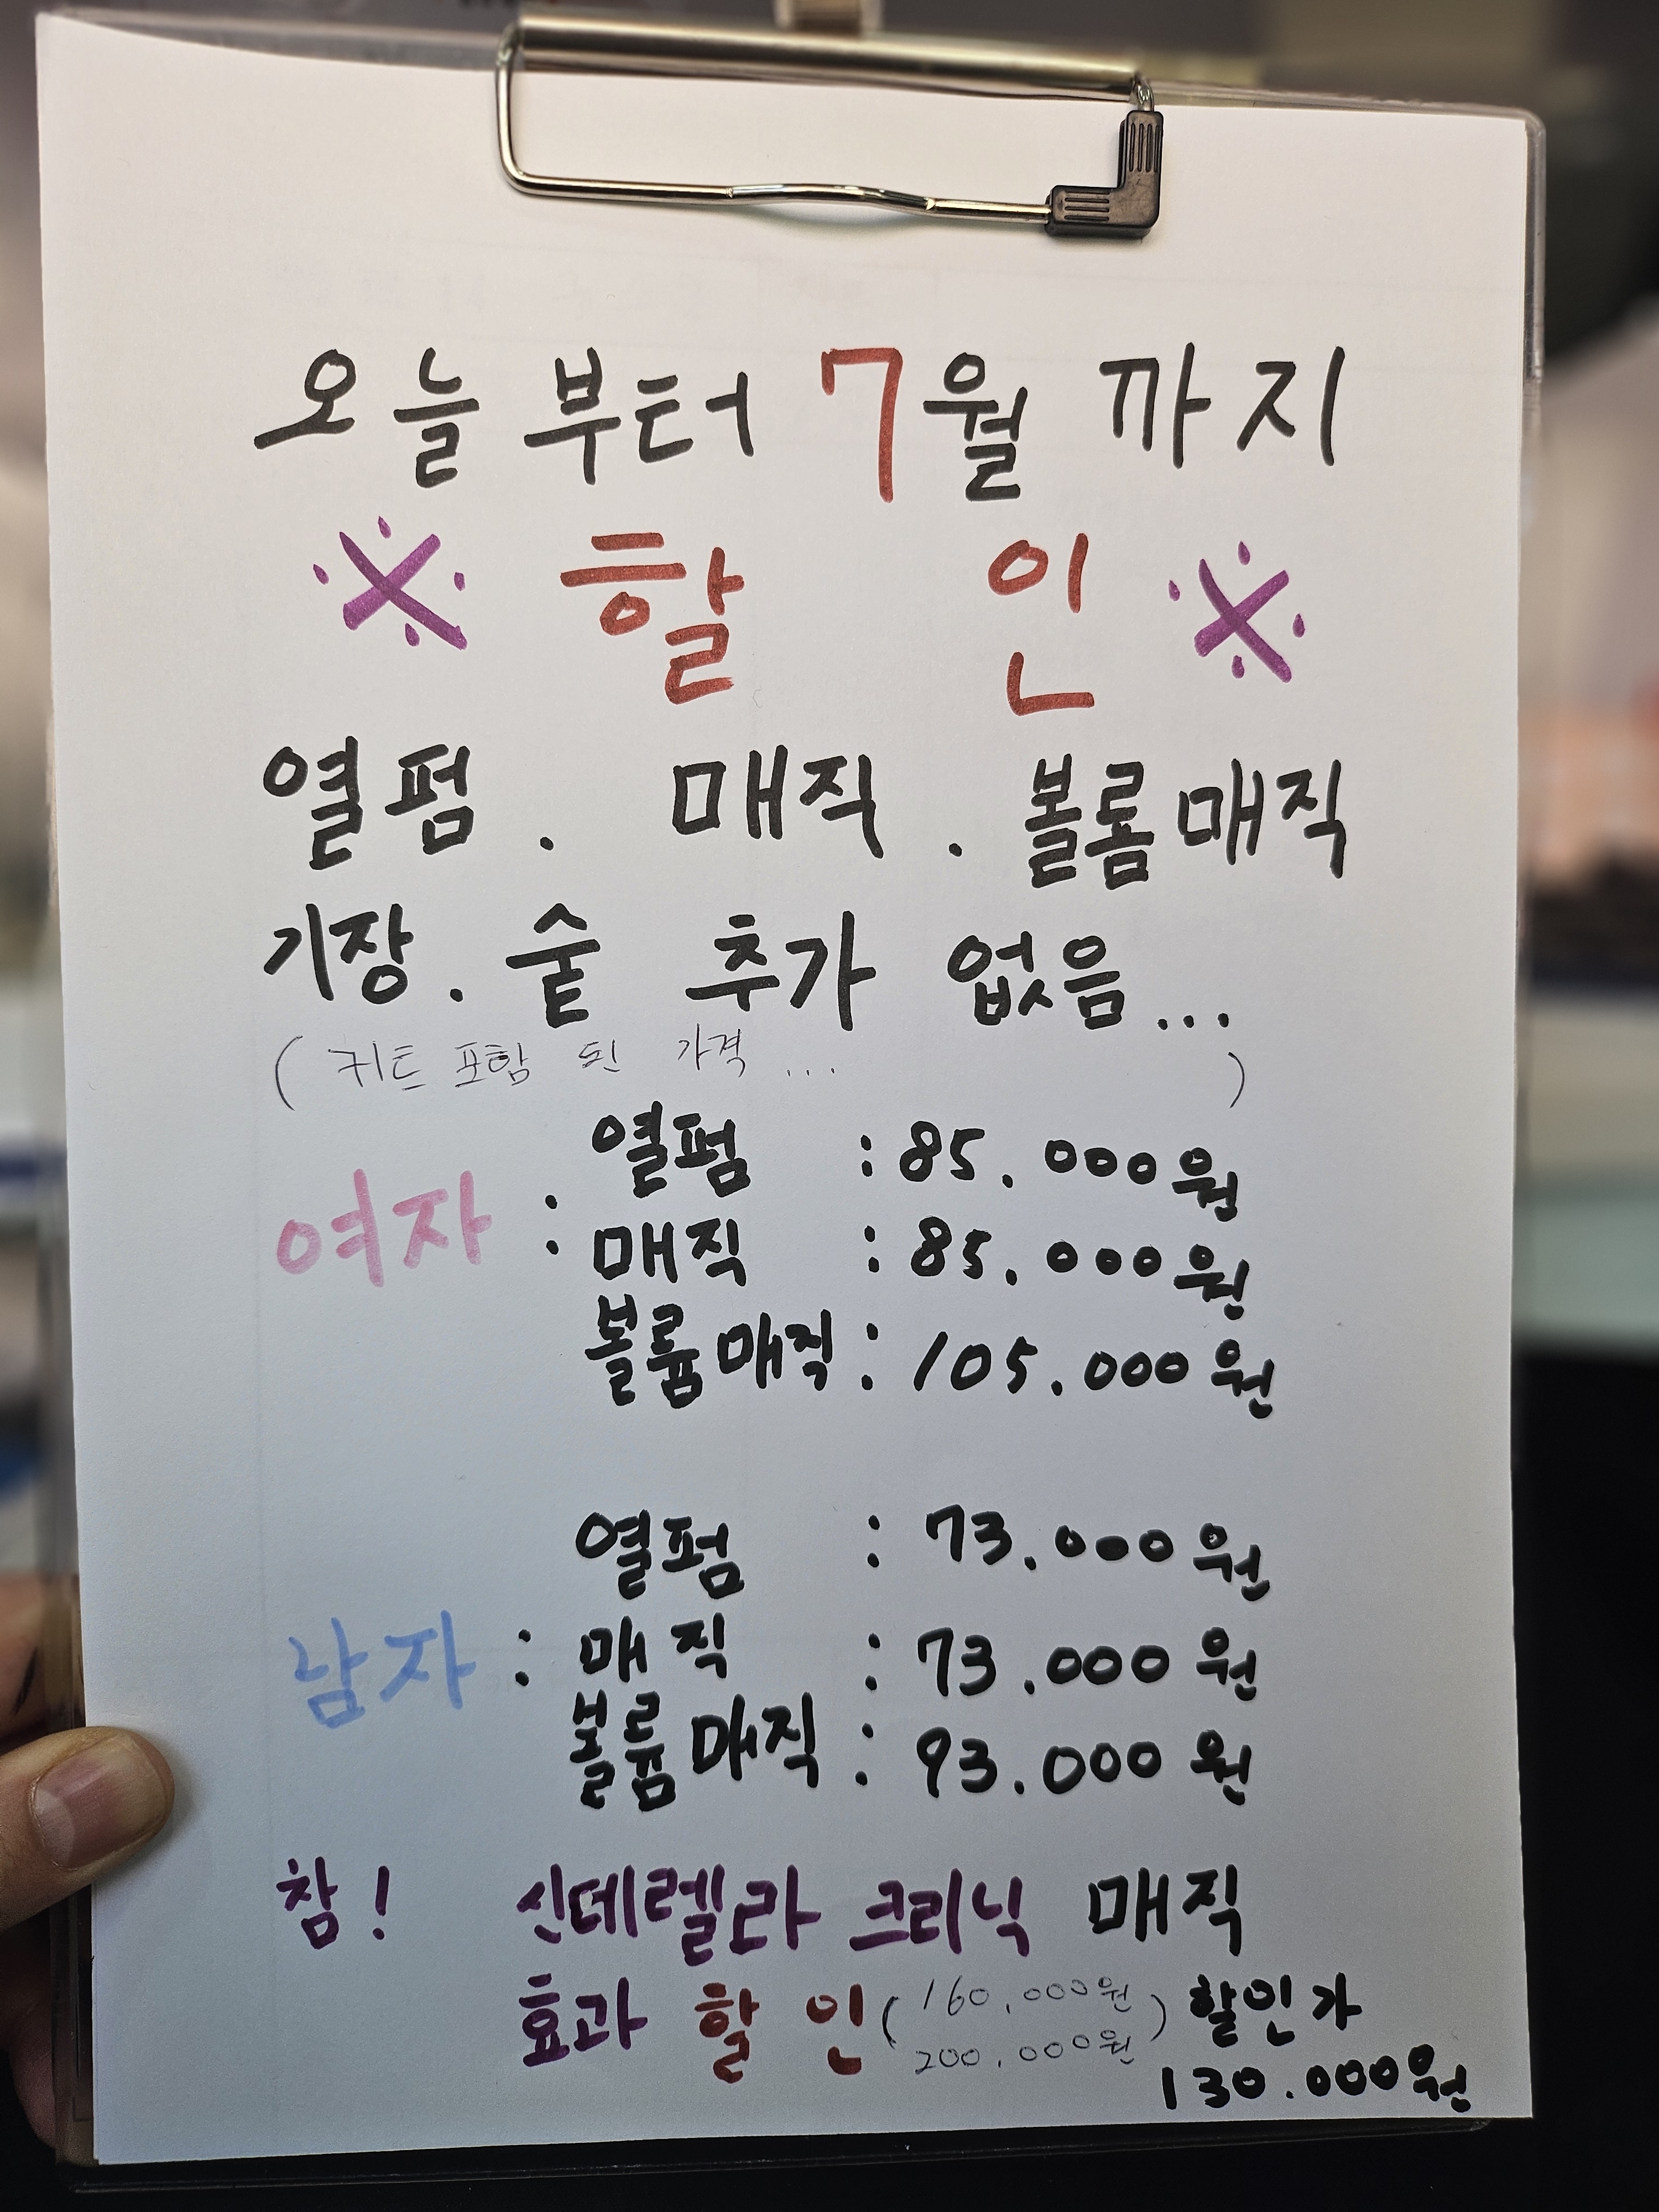 오늘부터 7월까지
※ 할인 ※
열펌. 매직. 볼륨매직
기장. 숱 추가 없음...
(커트 포함 된 가격...)
여자 : 열펌 : 85.000원
매직 : 85.000원
볼륨매직 : 105.000원
남자 : 열펌 : 73.000원
매직 : 73.000원
볼륨매직 : 93.000원
참! 신데렐라 크리닉 매직
효과 할인 (160,000원 200,000원) 할인가
130.000원